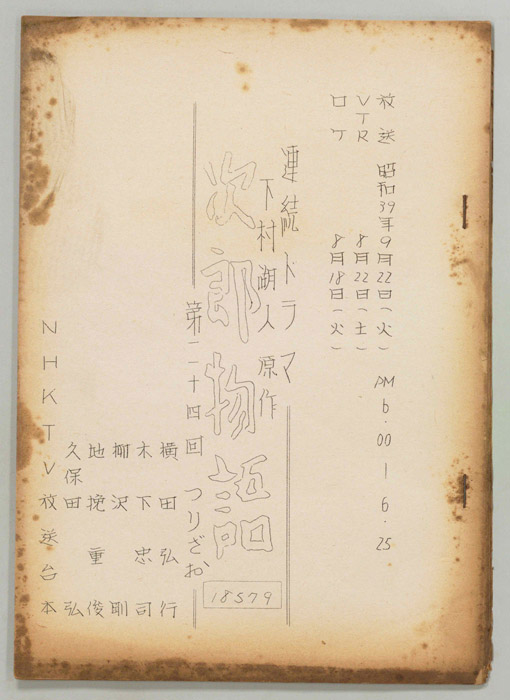 放送 昭和39年9月22日(火) PM 6.00－6.25
VTR 8月22日(土)
ロケ 8月18日(火)
連続ドラマ
下村湖人 原作
次郎物語
第二十四回 つりざお
18579
横田弘行
木下忠司
柳沢剛
地挽重俊
久保田弘
NHKTV放送台本